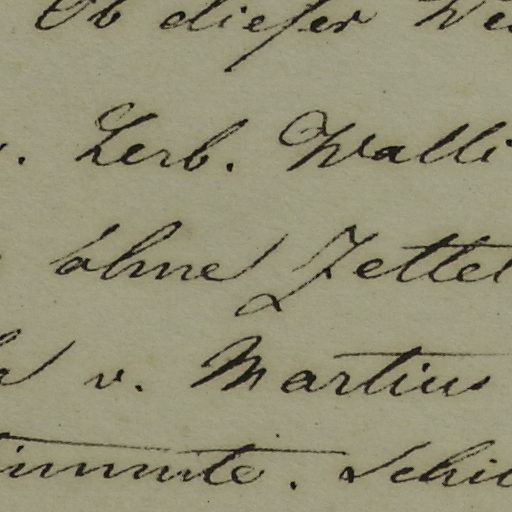 Ob dieser We
. Herb. Walli
ohne Zettel
v. Martius
timmte. Schi